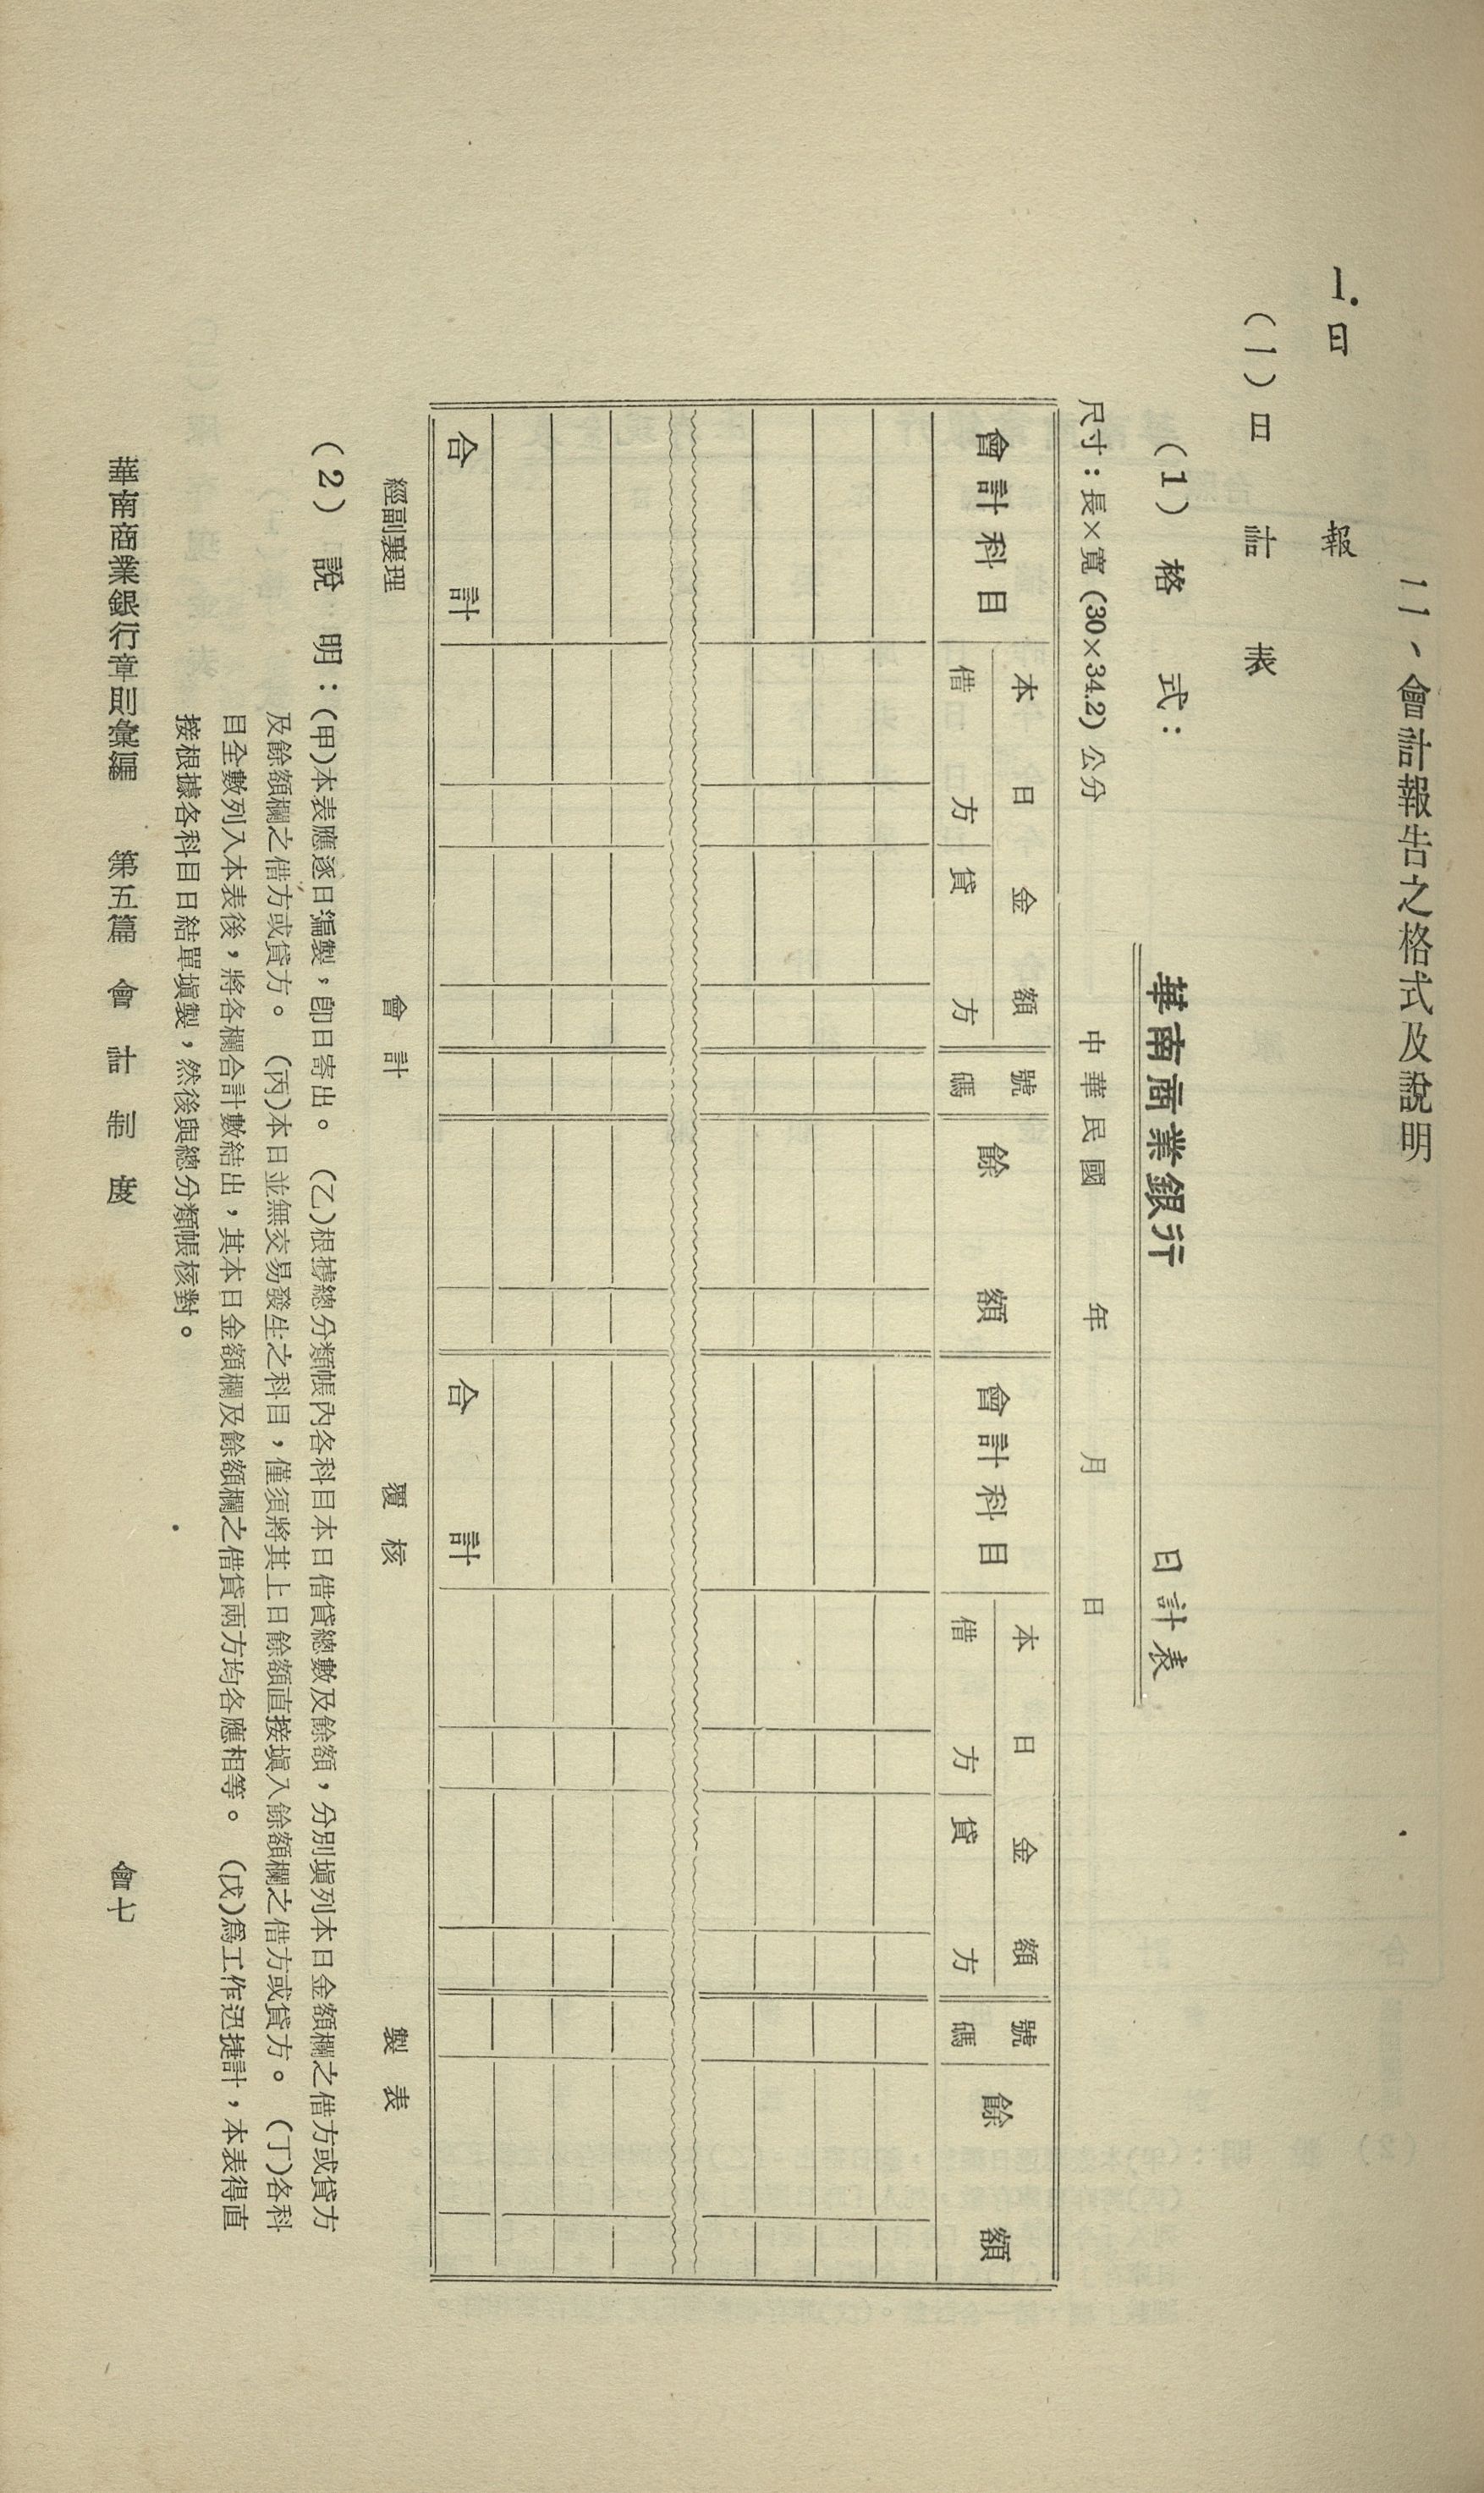 11、會計報告之格式及說明
1. 日報
(1) 日計表
(1) 格式：
華南商業銀行 日計表
尺寸：長×寬 (30×34.2) 公分 中華民國 年 月 日
會計科目 本日金額 號碼 餘額 會計科目 本日金額 號碼 餘額
借方 貸方 借方 貸方
合計 合計
經副襄理 會計 覆核 製表
(2) 說明：(甲)本表應逐日編製，卽日寄出。 (乙)根據總分類帳內各科目本日借貸總數及餘額，分別塡列本日金額欄之借方或貸方
及餘額欄之借方或貸方。 (丙)本日並無交易發生之科目，僅須將其上日餘額直接塡入餘額欄之借方或貸方。 (丁)各科
目全數列入本表後，將各欄合計數結出，其本日金額欄及餘額欄之借貸兩方均各應相等。 (戊)爲工作迅捷計，本表得直
接根據各科目日結單塡製，然後與總分類帳核對。
華南商業銀行章則彙編 第五編 會計制度 會七